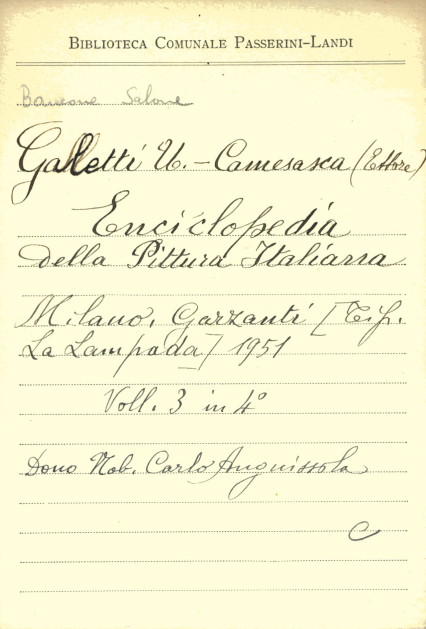 BIBLIOTECA COMUNALE PASSERINI-LANDI
Bancone Salone
Galletti U. - Camesasca (Ettore)
Enciclopedia
della Pittura Italiana
Milano, Garzanti [Tip.
La Lampada] 1951
Voll. 3 in 4°
Dono Nob. Carlo Anguissola
C